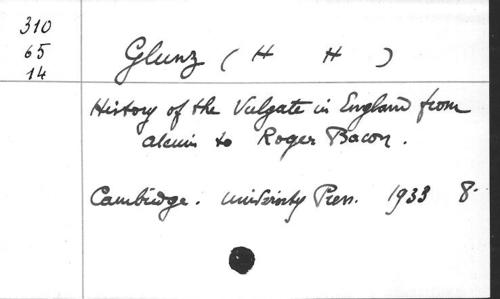 310
65
14
Glunz ( H H )
History of the Vulgate in England from
Alcuin to Roger Bacon.
Cambridge. University Press. 1933 8·